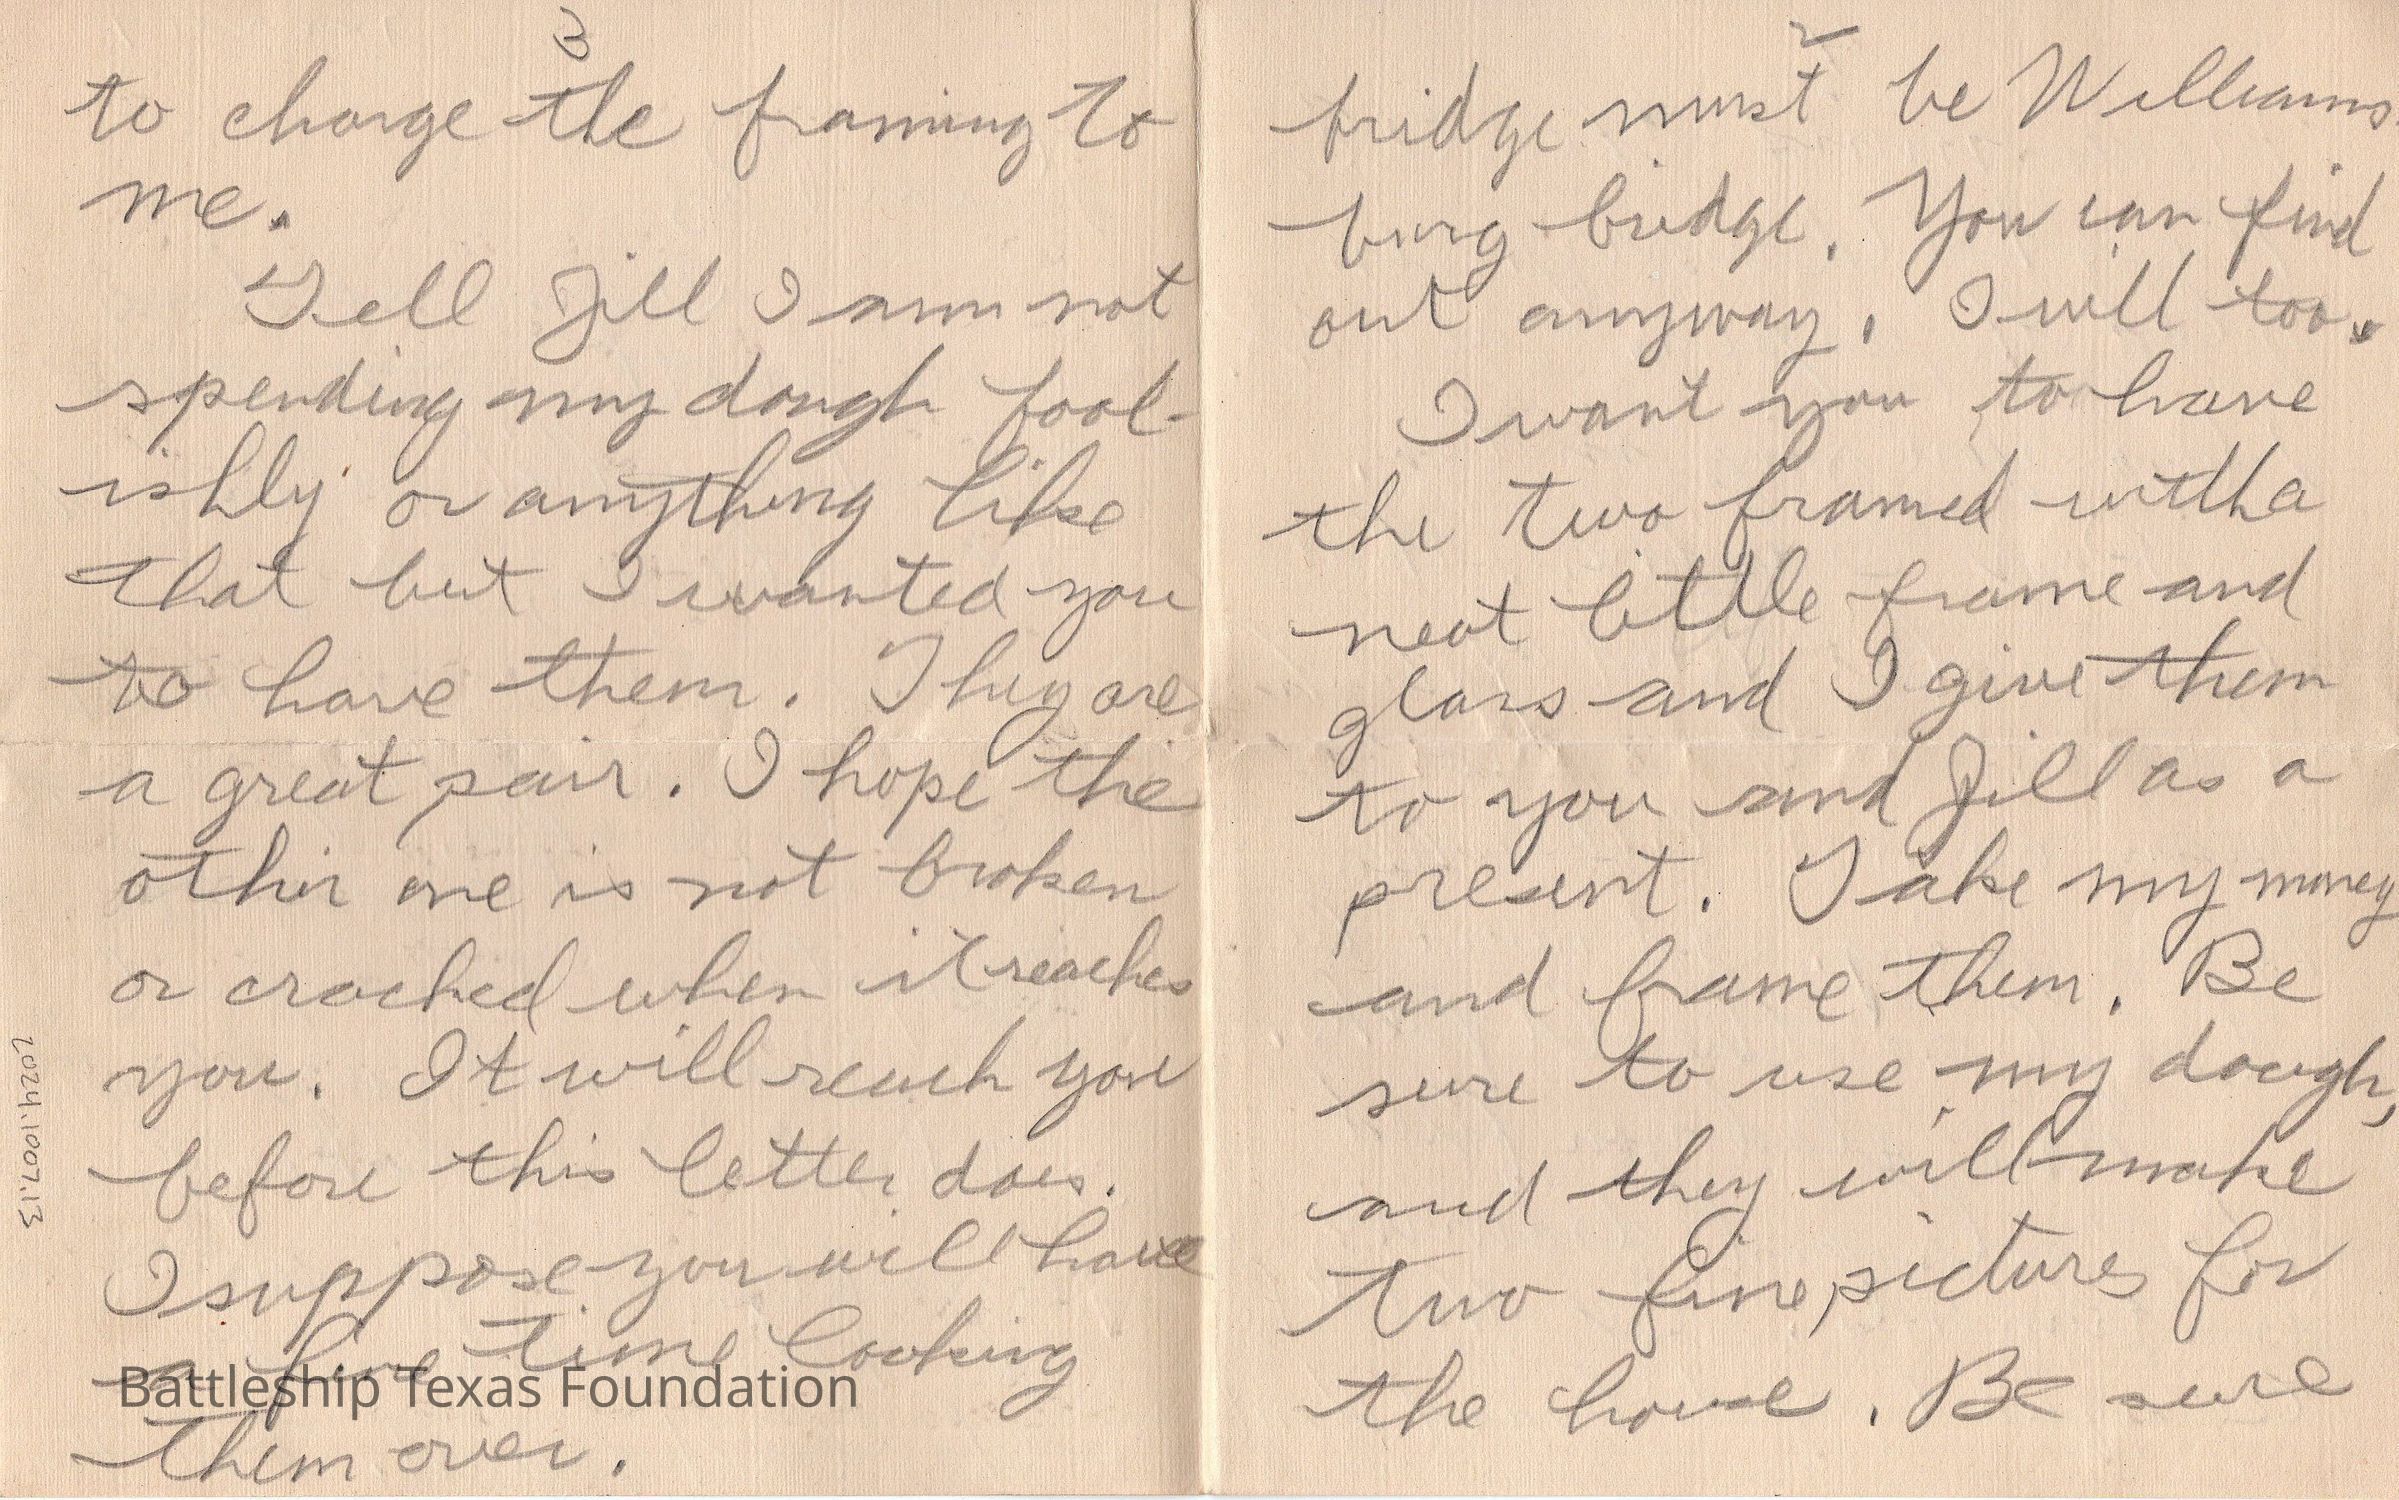 2
bridge must be Williams
burg bridge. You can find
out anyway. I will too.
I want you to have
the two framed with a
neat little frame and
glass and I give them
to you and Jill as a
present. Take my money
and frame them. Be
sure to use my dough,
and they will make
two fine pictures for
the house. Be sure
3
to charge the framing to
me.
Tell Jill I am not
spending my dough fool-
ishly or anything like
that but I wanted you
to have them. They are
a great pair. I hope the
other one is not broken
or cracked when it reaches
you. It will reach you
before this letter does.
I suppose you will have
a fine time looking
them over.
2024.1007.13
Battleship Texas Foundation